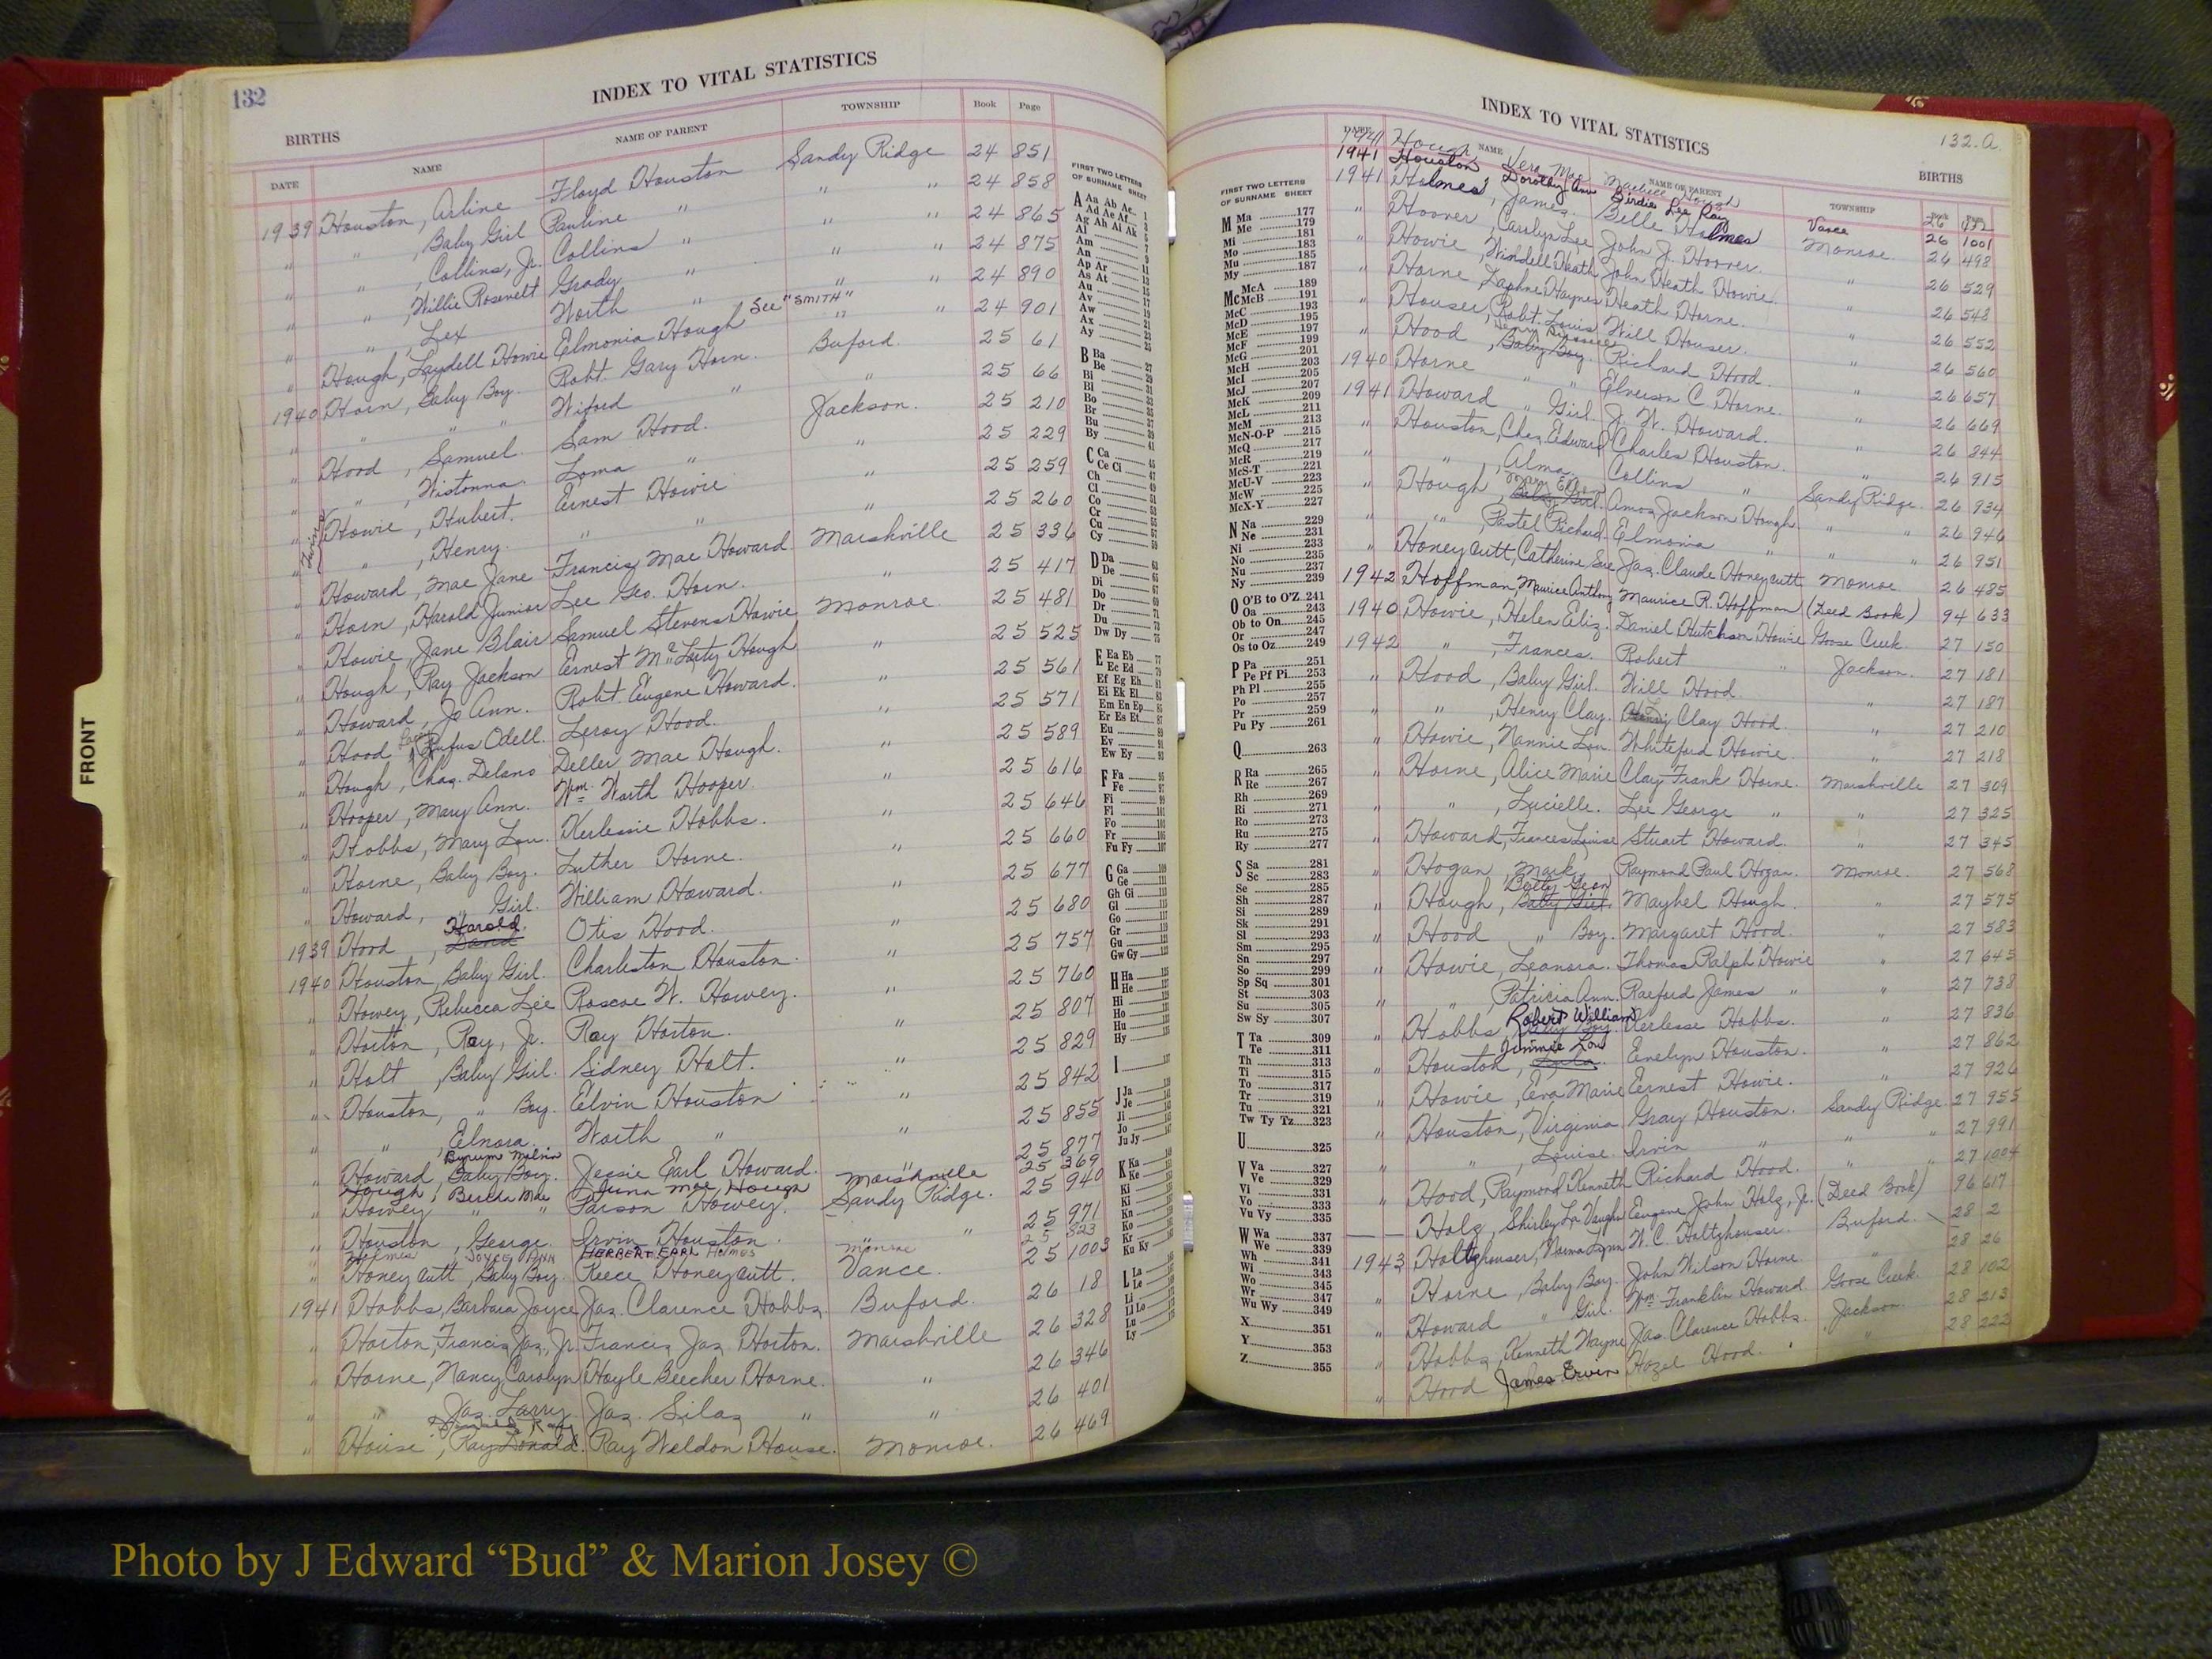 132
INDEX TO VITAL STATISTICS
BIRTHS
DATE NAME NAME OF PARENT TOWNSHIP Book Page
1939 Houston, Arline Floyd Houston Sandy Ridge 24 851
" " , Baby Girl Pauline " " " 24 858
" " , Collins, Jr. Collins " " " 24 865
" " , Willie Rosevelt Grady " " " 24 875
" " , Lex Worth " " " 24 890
" Hough, Laydell Howie Elmonia Hough See "SMITH" " " 24 901
1940 Horn, Baby Boy. Robt. Gary Horn. Buford. 25 61
" " " " Wiford " " 25 66
" Hood, Samuel. Sam Hood. Jackson. 25 210
" " , Wistonna. Loma " " 25 229
Twins
" Howie, Hubert. Ernest Howie " 25 259
" " , Henry. " " " 25 260
" Howard, Mae Jane Francis Mae Howard Marshville 25 336
" Horn, Harold Junior Lee Geo. Horn. " 25 417
" Howie, Jane Blair Samuel Stevens Howie Monroe. 25 481
" Hough, Ray Jackson Ernest McLarty Hough " 25 525
" Howard, Jo Ann. Robt. Eugene Howard. " 25 561
" Hood, Rufus Odell. Leroy Hood. " 25 571
" Hough, Chas. Delano Deller Mae Hough. " 25 589
" Hooper, Mary Ann. Wm. Worth Hooper. " 25 616
" Hobbs, Mary Lou. Kerlessie Hobbs. " 25 646
" Horne, Baby Boy. Luther Horne. " 25 660
" Howard, " Girl. William Howard. " 25 677
1939 Hood, Harold. Otis Hood. " 25 680
1940 Houston, Baby Girl. Charleston Houston. " 25 757
" Howey, Rebecca Lee Roscoe W. Howey. " 25 760
" Horton, Ray, Jr. Ray Horton. " 25 807
" Holt, Baby Girl. Sidney Holt. " 25 829
" Houston, " Boy. Elvin Houston " 25 842
" " , Elnora. Worth " " 25 855
Byrum Melvin
" Howard, Baby Boy. Jessie Earl Howard. " 25 877
Hough, Bercha Mae Junn Mae Hough Marshville 25 369
" Howey " " Parson Howey. Sandy Ridge. 25 940
" Houston, George. Irvin Houston. " " 25 971
Holmes JOYCE ANN HERBERT EARL Holmes Monroe 25 523
" Honeycutt, Baby Boy. Reece Honeycutt. Vance. 25 1003
1941 Hobbs, Barbara Joyce Jas. Clarence Hobbs. Buford. 26 18
" Horton, Francis Jas., Jr. Francis Jas. Horton. Marshville 26 328
" Horne, Nancy Carolyn Hoyle Beecher Horne. " 26 346
" " Jas. Larry. Jas. Silas " " 26 401
" House, Ray Donald. Ray Weldon House. Monroe. 26 469
FIRST TWO LETTERS
OF SURNAME SHEET
A Aa Ab Ae 1
Ad Ae Af
Ag Ah Ai Ak
Al
Am
An
Ap Ar
As At
Au
Av
Aw
Ax
Ay
B Ba
Be
Bi
Bl
Bo
Br
Bu
By
C Ca
Ce Ci
Ch
Cl
Co
Cr
Cu
Cy
D Da
De
Di
Do
Dr
Du
Dw Dy
E Ea Eb
Ec Ed
Ef Eg Eh
Ei Ek El
Em En Ep
Er Es Et
Eu
Ev
Ew Ey
F Fa
Fe
Fi
Fl
Fo
Fr
Fu Fy
G Ga
Ge
Gh Gi
Gl
Go
Gr
Gu
Gw Gy
H Ha
He
Hi
Ho
Hu
Hy
I
J Ja
Je
Ji
Jo
Ju Jy
K Ka
Ke
Ki
Kl
Kn
Ko
Kr
Ku Ky
L La
Le
Li
Ll Lo
Lu
Ly
FRONT
INDEX TO VITAL STATISTICS
132.a
BIRTHS
FIRST TWO LETTERS
OF SURNAME SHEET
M Ma 177
Me 179
Mi 181
Mo 183
Mu 185
My 187
Mc McA 189
McB 191
McC 193
McD 195
McE 197
McF 199
McG 201
McH 203
McI 205
McJ 207
McK 209
McL 211
McM 213
McN-O-P 215
McQ 217
McR 219
McS-T 221
McU-V 223
McW 225
McX-Y 227
N Na 229
Ne 231
Ni 233
No 235
Nu 237
Ny 239
O O'B to O'Z 241
Oa 243
Ob to On 245
Or 247
Os to Oz 249
P Pa 251
Pe Pf Pi 253
Ph Pl 255
Po 257
Pr 259
Pu Py 261
Q 263
R Ra 265
Re 267
Rh 269
Ri 271
Ro 273
Ru 275
Ry 277
S Sa 281
Sc 283
Se 285
Sh 287
Si 289
Sk 291
Sl 293
Sm 295
Sn 297
So 299
Sp Sq 301
St 303
Su 305
Sw Sy 307
T Ta 309
Te 311
Th 313
Ti 315
To 317
Tr 319
Tu 321
Tw Ty Tz 323
U 325
V Va 327
Ve 329
Vi 331
Vo 333
Vu Vy 335
W Wa 337
We 339
Wh 341
Wi 343
Wo 345
Wr 347
Wu Wy 349
X 351
Y 353
Z 355
DATE NAME NAME OF PARENT TOWNSHIP
1941 Hough Vera Mae Hough 26
1941 Houston Dorothy Ann Birdie Lee Ray Vance 26 1001
1941 Holmes, James. Belle Holmes Monroe. 26 498
" Hoover, Carolyn Lee John J. Hoover. " 26 529
" Howie, Windell Heath John Heath Howie. 26 548
" Horne, Daphne Haynes Heath Horne. " 26 552
" Houser, Robt. Louis Will Houser. " 26 560
" Hood, Baby Boy. Richard Hood. " 26 657
1940 Horne " " Elverson C. Horne. " 26 669
1941 Howard " Girl. J. W. Howard. " 26 844
" Houston, Chas. Edward Charles Houston. " 26 915
" " , Alma. Collins " Sandy Ridge. 26 934
" Hough, Baby Girl. Amos Jackson Hough. " " 26 946
" " , Pastel Richard. Elmonia " " " 26 951
" Honeycutt, Catherine Sue Jas. Claude Honeycutt Monroe 26 485
1942 Hoffman, Maurice Anthony Maurice R. Hoffman (Deed Book) 94 633
1940 Howie, Helen Eliz. Daniel Hutchson Howie Goose Creek. 27 150
1942 " , Frances. Robert " Jackson. 27 181
" Hood, Baby Girl. Will Hood. " 27 187
" " , Henry Clay. Clay Hood. " 27 210
" Howie, Nannie Lou. Whiteford Howie. " 27 218
" Horne, Alice Marie Clay Frank Horne. Marshville 27 309
" " , Lucielle. Lee George " " 27 325
" Howard, Frances Louise Stuart Howard. " 27 345
" Hogan, Mark. Raymond Paul Hogan. Monroe. 27 568
Betty Jean
" Hough, Baby Girl. Maybel Hough. " 27 575
" Hood " Boy. Margaret Hood. " 27 583
" Howie, Leonora. Thomas Ralph Howie " 27 645
" " , Patricia Ann. Raeford James " " 27 738
Robert William
" Hobbs, Baby Boy. Kerlesse Hobbs. " 27 836
" Houston, Jimmie Lou Evelyn Houston. " 27 862
" Howie, Eva Marie Ernest Howie. " 27 926
" Houston, Virginia Gray Houston. Sandy Ridge. 27 955
" " , Louise. Irvin " " " 27 991
" Hood, Raymond Kenneth Richard Hood. " " 27 1004
— — Holz, Shirley La Vaughn Eugene John Holz, Jr. (Deed Book) 96 617
1943 Holtzhouser, Norma Lynn W. C. Holtzhouser. Buford. 28 2
" Horne, Baby Boy. John Wilson Horne " 28 26
" Howard " Girl. Wm. Franklin Howard Goose Creek. 28 102
" Hobbs, Kenneth Wayne Jas. Clarence Hobbs. Jackson. 28 213
" Hood James Ervin Hazel Hood. " 28 222
Photo by J Edward “Bud” & Marion Josey ©